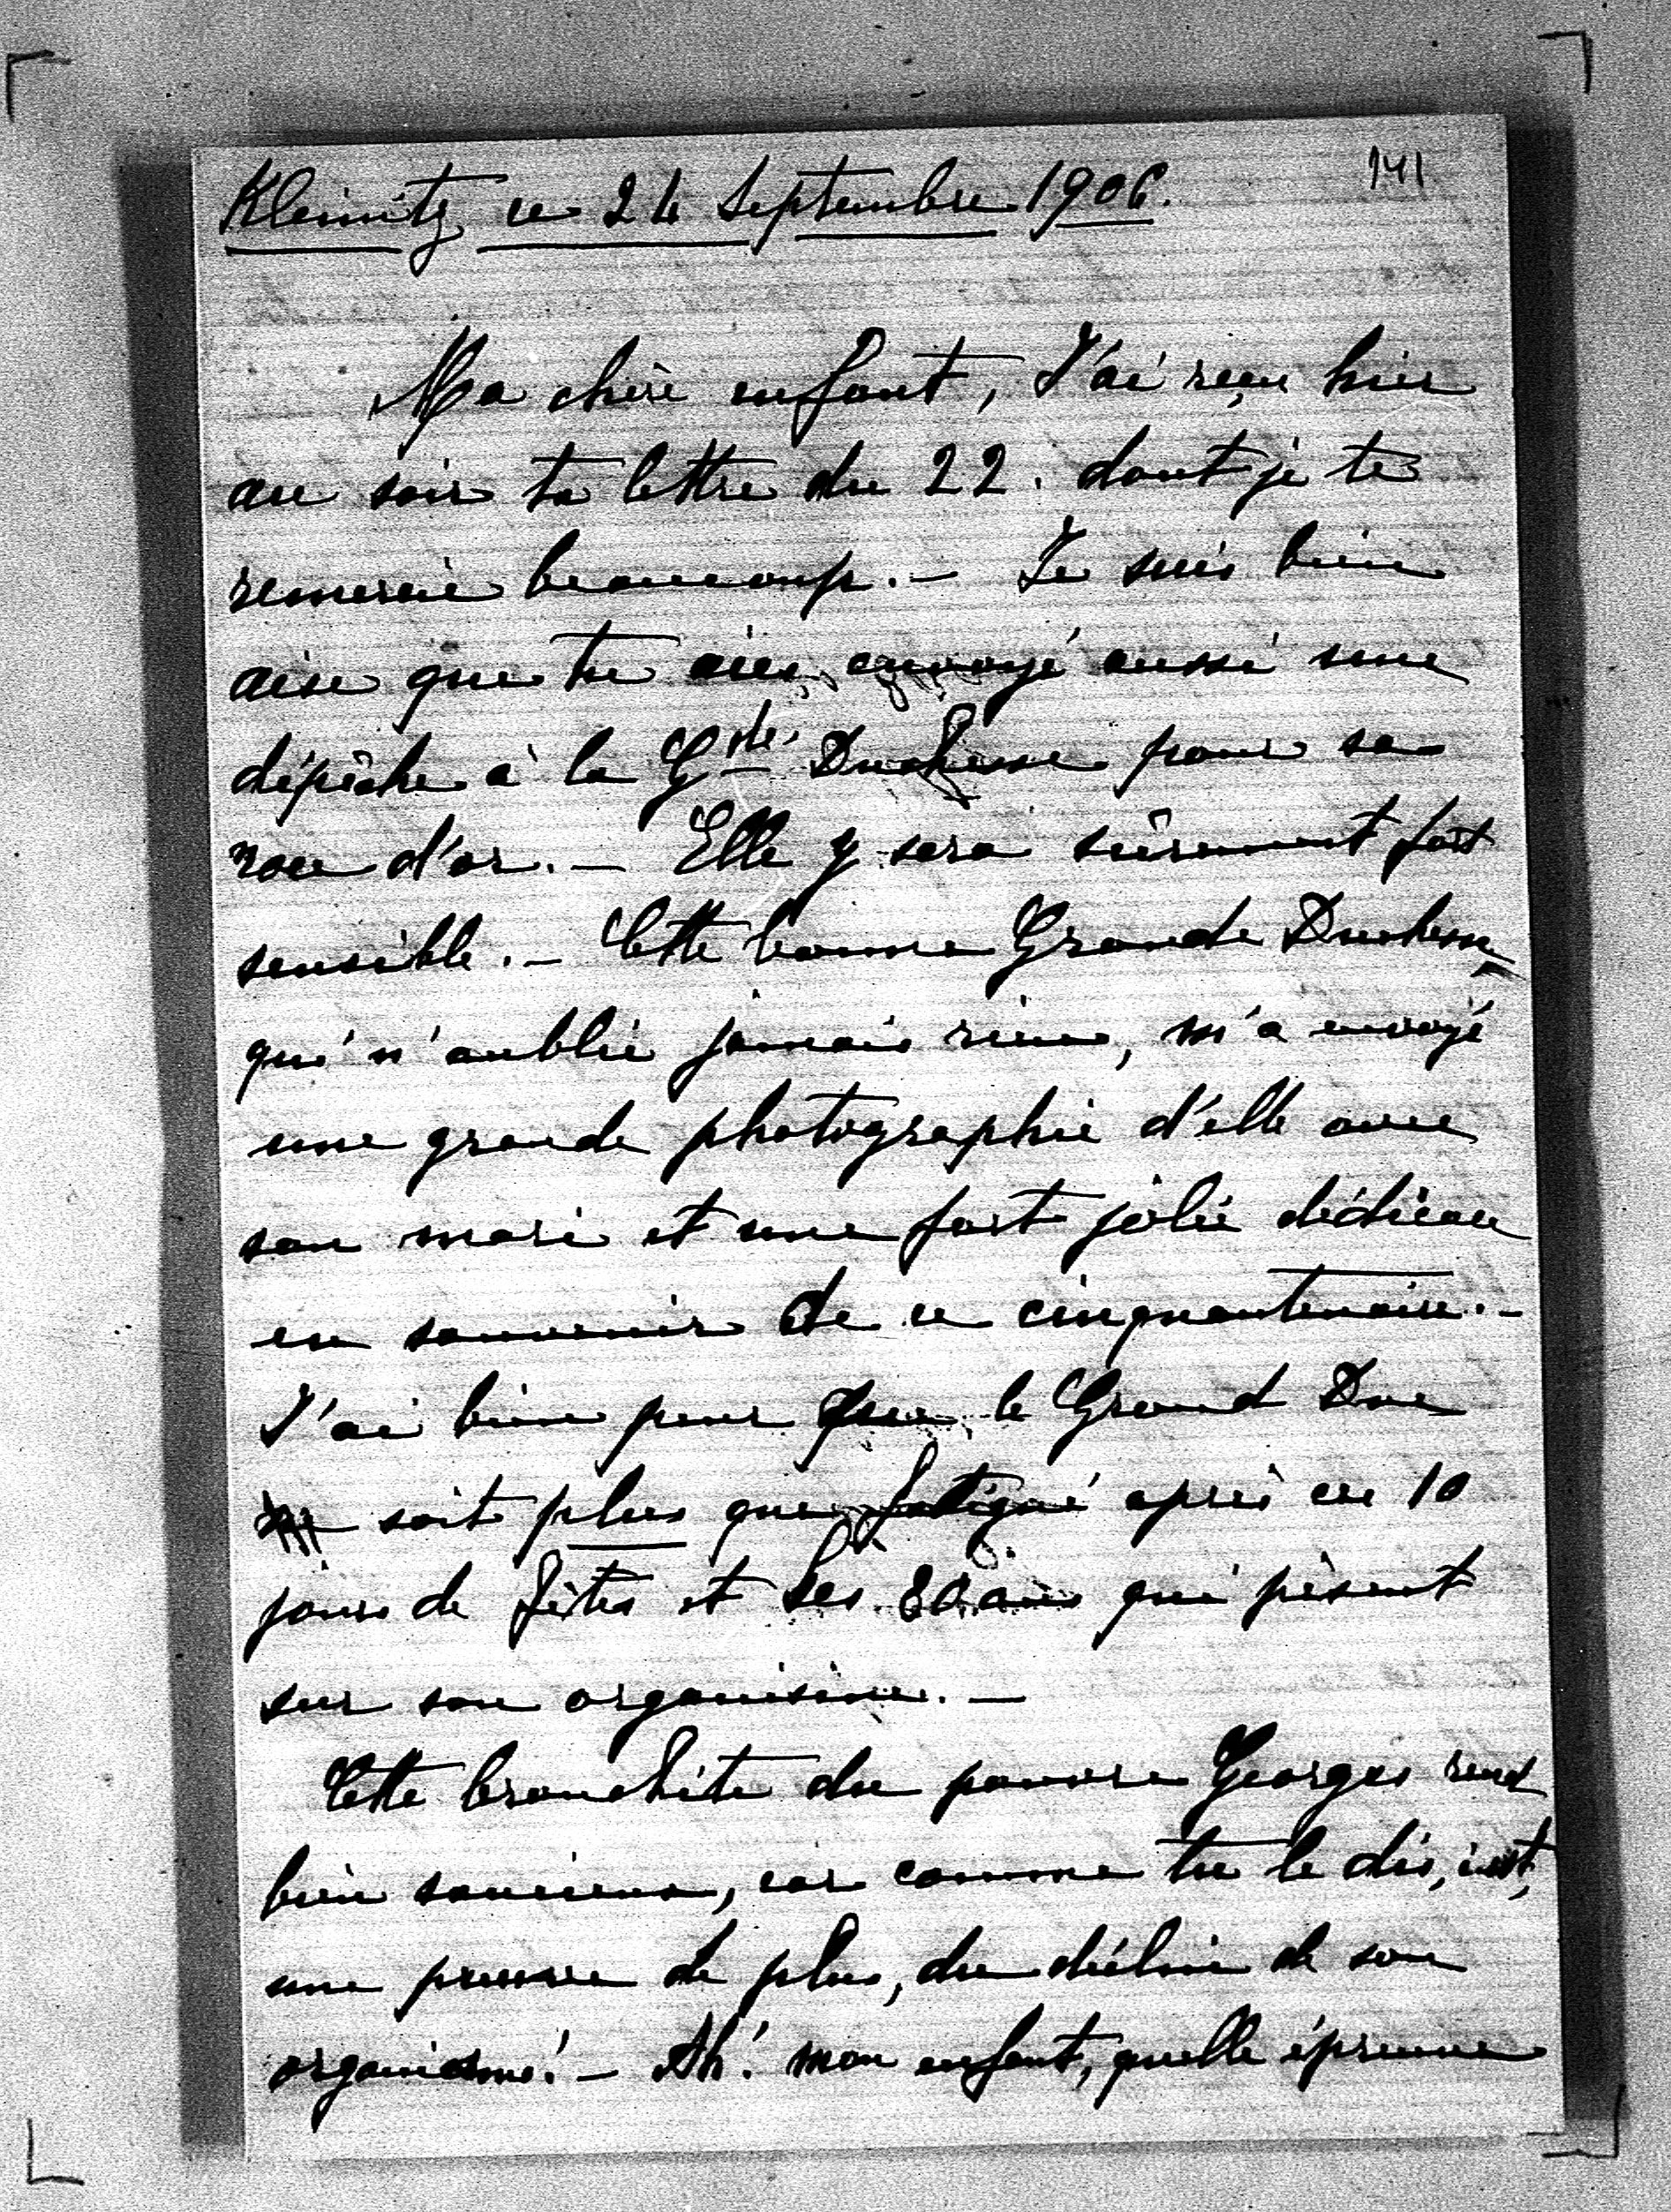 141
Kleinitz ce 24 Septembre 1906.
Ma chère enfant, J'ai reçu hier
au soir ta lettre du 22. dont je te
remercie beaucoup. — Je suis bien
aise que tu aies envoyé aussi une
dépêche à la Gde. Duchesse pour sa
noce d'or. — Elle y sera sûrement fort
sensible. — Cette bonne Grande Duchesse
qui n'oublie jamais rien, m'a envoyé
une grande photographie d'elle avec
son mari et une fort jolie dédicace
en souvenir de ce cinquantenaire. —
J'ai bien peur que le Grand Duc
ne soit plus que fatigué après ces 10
jours de fêtes et les 80 ans qui pèsent
sur son organisme. —
Cette bronchite du pauvre Georges rend
bien soucieux, car comme tu le dis, c'est,
une preuve de plus, du déclin de son
organisme! — Ah! mon enfant, quelle épreuve